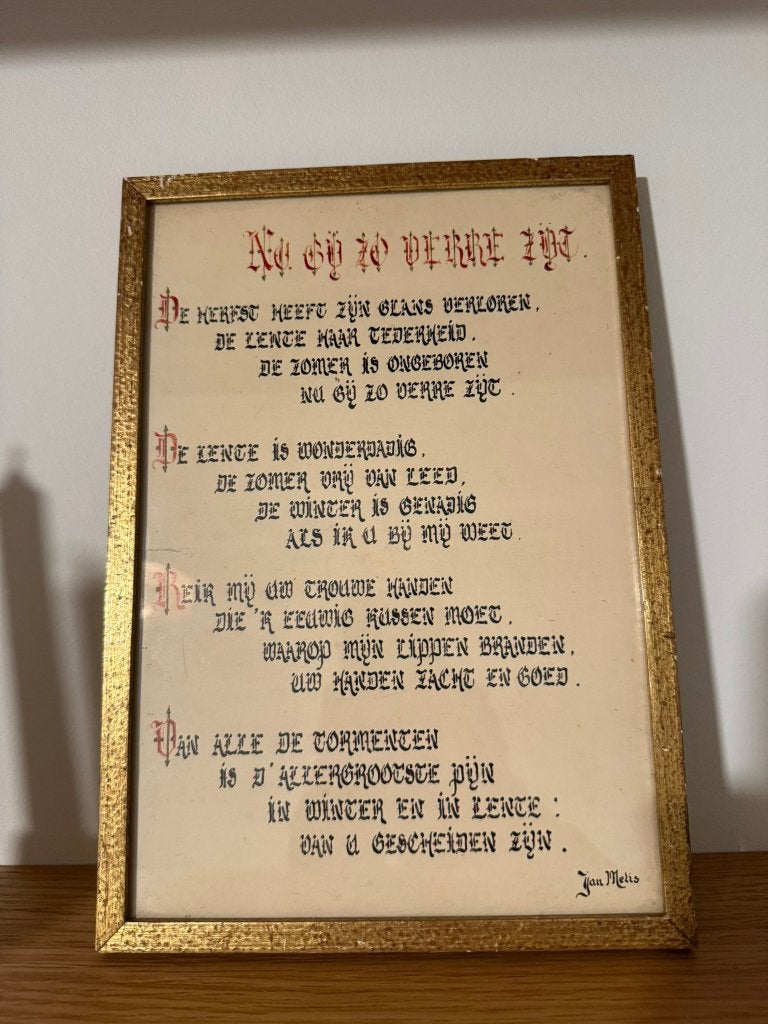 Nu gij zo verre zijt.
De herfst heeft zijn glans verloren,
de lente haar tederheid.
de zomer is ongeboren
nu gij zo verre zijt.
De lente is wonderdadig,
de zomer vrij van leed,
de winter is genadig
als ik u bij mij weet.
Reik mij uw trouwe handen
die 'k eeuwig kussen moet,
waarop mijn lippen branden,
uw handen zacht en goed.
Van alle de tormenten
is d'allergrootste pijn
in winter en in lente:
van u gescheiden zijn.
Jan Melis